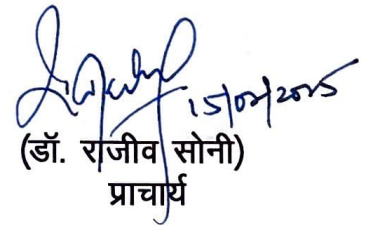 15/02/2025
(डॉ. राजीव सोनी)
प्राचार्य